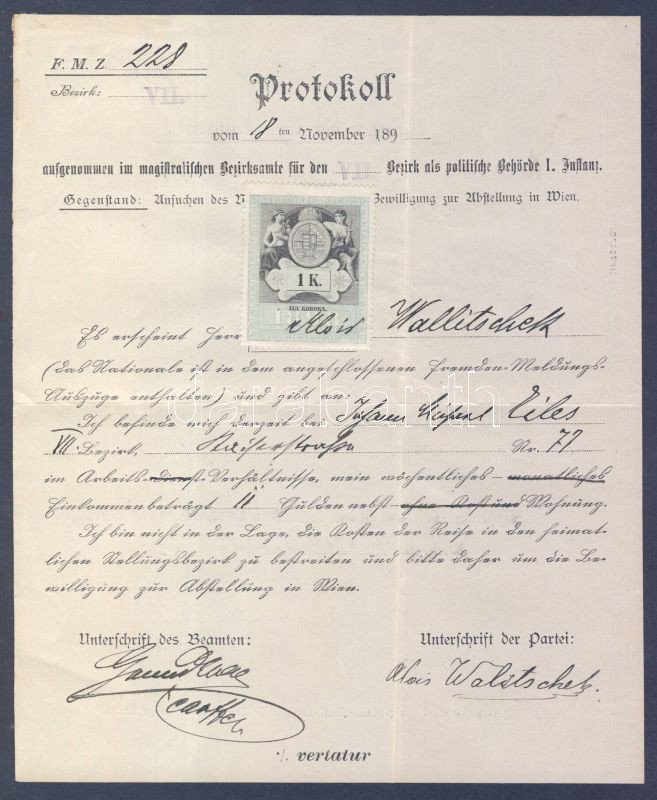 F. M. Z. 228
Bezirk: VII.
Protokoll
vom 18ten November 189
aufgenommen im magistratischen Bezirksamte für den VII. Bezirk als politische Behörde I. Instanz.
Gegenstand: Ansuchen des Bewilligung zur Abstellung in Wien.
1 K.
EGY KORONA.
Es erscheint Herr Alois Wallitschek
(das Nationale ist in dem angeschlossenen Fremden-Meldungs-
Auszuge enthalten) und gibt an:
Ich befinde mich derzeit bei Johann Eiles
VII Bezirk, Kaiserstrasse Nr. 77
im Arbeits-dienst-Verhältnisse, mein wöchentliches - monatliches
Einkommen beträgt 11 Gulden nebst ohne Kost und Wohnung.
Ich bin nicht in der Lage, die Kosten der Reise in den heimat-
lichen Stellungsbezirk zu bestreiten und bitte daher um die Be-
willigung zur Abstellung in Wien.
Unterschrift des Beamten:
Unterschrift der Partei:
Alois Walitschek.
./. vertatur
darabanth